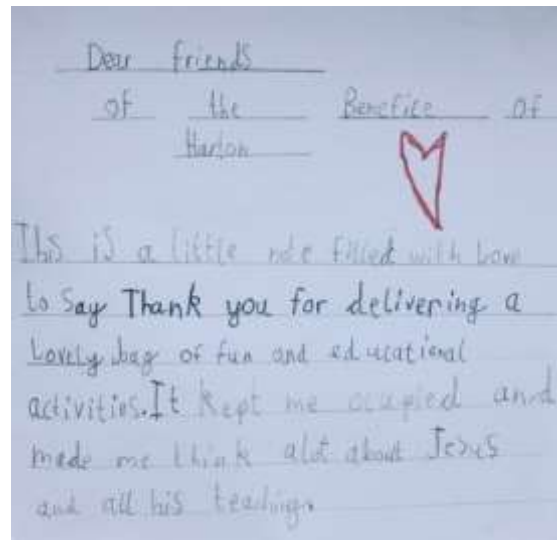 Dear friends
of the Benefice of
Harton
This is a little note filled with love
to say Thank you for delivering a
Lovely bag of fun and educational
activities. It kept me ocupied and
made me think alot about Jesus
and all his teachings